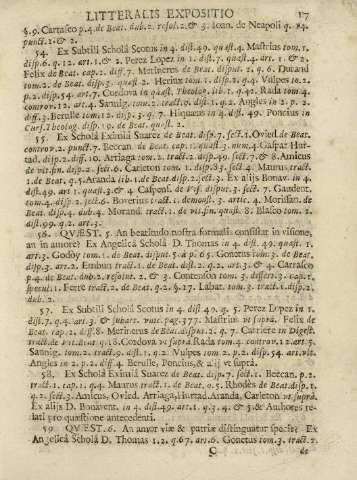 LITTERALIS EXPOSITIO 17
§.9. Cartasco p.4. de Beat. dub.2. resol.2.& 3. Ioan. de Neapoli q. 14.
punct.1.& 2.
54. Ex Subtili Scholâ Scotus in 4. dist.49. quæst.4. Mastrius tom.1.
disp.6. q.12. art.1.& 2. Perez Lopez in 1. dist.7. quæst.4. art.1. & 2
Felix de Beat. cap.2. diff.7. Merinerus de Beat. disput.2. q. 6. Durand
tom.2. de Beat. disp.3. quæst 2. Herinx tom.1. disp.2. q.4. Vulpes to.2.
p.2. disp.54. art.7. Cordova in quæst. Theolog. lib.1. q.42. Rada tom.4.
controv.12. art.4. Sannig. tom.2. tract.9. dist.1. q.2. Angles in 2. p. 2.
diff.3. Berulle tom.12. disp.3. q. 7. Hiquæus in 4. dist.49. Poncius in
Curs. Theolog. disp.19. de Beat. quæst. 2.
55. Ex Scholâ Eximiâ Suarez de Beat. disp.7. sect.1. Ovied. de Beat.
controv.2. punct.7. Beccan. de Beat. cap.1. quæst.3. num.4. Gaspar Hur-
tad. disp.2. diff.10. Arriaga tom.2. tract.2. disp.49. sect.7. & 8. Amicus
de vit. fin. disp.2. sect.6. Carleton tom.1. disp.83. sect.4. Maurus tract.
1. de Beat. q.5. Aranda lib.1. de Beat. disp.2. sect.3. Ex alijs Bonav. in 4.
dist.49. art 1. quæst.3.& 4 Caspens. de Vis. disput.3. sect.7. Gaudent.
tom.4. disp.2. sect.6. Boverius tract.1. demonst. 3. artic. 4. Morissan. de
Beat. disp.4. dub 4. Morand. tract.1. de vit. fin. quæst.8. Blasco tom. 2.
dist.99. q.2. art.3.
56. QUÆST. 5. An beatitudo nostra formalis consistat in visione,
an in amore? Ex Angelicâ Scholâ D. Thomas in 4. dist. 49. quæst. 1.
art.3. Godoy tom.1. de Beat. disput.5. à p. 65. Gonetus tom.3. de Beat.
disp.3. art.2. Embun tract.1. de Beat. dist.2. q.2. art.3. & 4. Cartasco
p.4. de Beat. dub.2. resolut. 2. & 3. Contenson tom. 3. dissert.3. cap.1.
specul.1. Ferre tract.2. de Beat. q.2. §.27. Labat. tom.3. de Beat. disp.1.
dub. 4.
57. Ex Subtili Scholâ Scotus in 4. dist 49. q. 5. Perez Lopez in 1.
dist.7. q.4. art.3. & subart. vnic. pag.377. Mastrius vt suprà. Felix de
Beat. cap.2. diff.8. Merinerus de Beat. disput.2. q. 7. Carriere in Digest.
tract. de Vit. Beat. q.18. Cordova vt suprà. Rada tom.4. controv.12. art.5.
Sannig. tom.2. tract.9. dist.1. q.2. Vulpes tom 2. p.2. disp.54. art.vlt.
Angles in 2 p.2. diff.4. Berulle, Poncius,& alij vt suprà.
58. Ex Scholâ Eximiâ Suarez de Beat. disp.7. sect.1. Beccan. p.2.
tract.1. cap.1. q.4. Maurus tract.1. de Beat. q.5. Rhodes de Beat. disp.1.
q.2. sect.3. Amicus, Ovied. Arriaga, Hurtad. Aranda, Carleton vt suprà.
Ex alijs D. Bonavent. in 4. dist.49. art.1. q.3. 4. & 5.& Authores re-
lati pro quæstione antecedenti.
59. QUÆST. 6. An amor viæ & patriæ distinguatur specie? Ex
Angelicâ Scholâ D. Thomas 1.2. q.67. art.6. Gonetus tom.3. tract.2.
C de